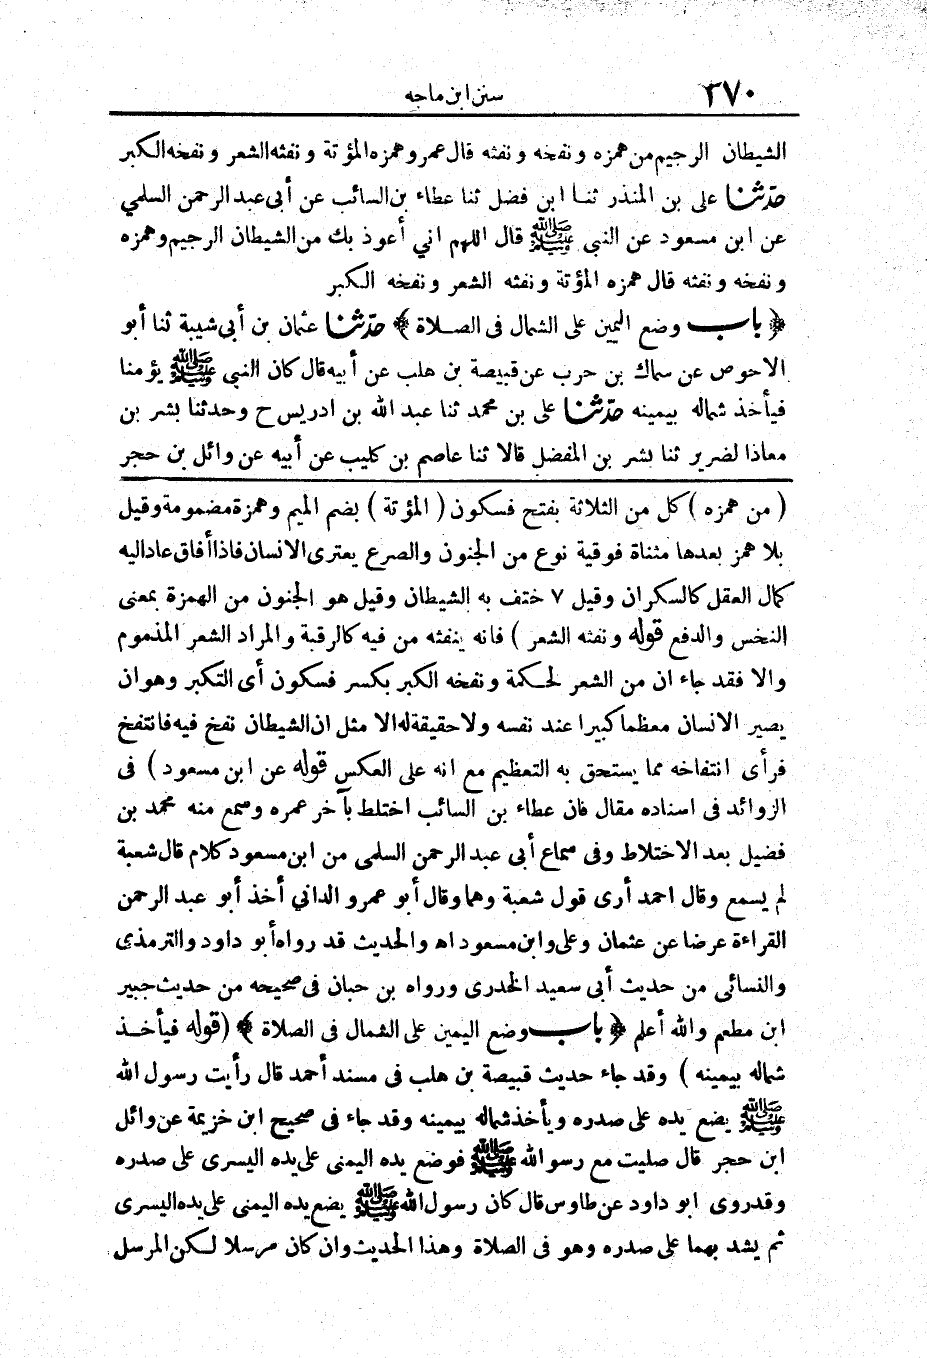 ٢٧٠
سنن ابن ماجه
الشيطان الرجيم من همزه ونفخه ونفثه قال عمرو همزه المؤتة ونفثه الشعر ونفخه الكبر
حدثنا على بن المنذر ثنا ابن فضل ثنا عطاء بن السائب عن أبى عبد الرحمن السلمي
عن ابن مسعود عن النبى ﷺ قال اللهم اني أعوذ بك من الشيطان الرجيم وهمزه
ونفخه ونفثه قال همزه المؤتة ونفثه الشعر ونفخه الكبر
﴿ باب وضع اليمين على الشمال فى الصلاة ﴾ حدثنا عثمان بن أبى شيبة ثنا أبو
الاحوص عن سماك بن حرب عن قبيصة بن هلب عن أبيه قال كان النبى ﷺ يؤمنا
فيأخذ شماله بيمينه حدثنا على بن محمد ثنا عبد الله بن ادريس ح وحدثنا بشر بن
معاذا لضرير ثنا بشر بن المفضل قالا ثنا عاصم بن كليب عن أبيه عن وائل بن حجر
( من همزه ) كل من الثلاثة بفتح فسكون ( المؤتة ) بضم الميم وهمزة مضمومة وقيل
بلا همز بعدها مثناة فوقية نوع من الجنون والصرع يعترى الانسان فاذا أفاق عاد اليه
كمال العقل كالسكران وقيل ٧ ختف به الشيطان وقيل هو الجنون من الهمزة بمعنى
النخس والدفع قوله ونفثه الشعر ) فانه ينفثه من فيه كالرقية والمراد الشعر المذموم
والا فقد جاء ان من الشعر لحكمة ونفخه الكبر بكسر فسكون أى التكبر وهو ان
يصير الانسان معظما كبيرا عند نفسه ولا حقيقة له الا مثل ان الشيطان نفخ فيه فانتفخ
فرأى انتفاخه مما يستحق به التعظيم مع انه على العكس قوله عن ابن مسعود ) فى
الزوائد فى اسناده مقال فان عطاء بن السائب اختلط بآخر عمره وسمع منه محمد بن
فضيل بعد الاختلاط وفى سماع أبى عبد الرحمن السلمى من ابن مسعود كلام قال شعبة
لم يسمع وقال احمد أرى قول شعبة وهما وقال أبو عمرو الداني أخذ أبو عبد الرحمن
القراءة عرضا عن عثمان وعلى وابن مسعود اه والحديث قد رواه أبو داود والترمذي
والنسائى من حديث أبى سعيد الخدرى ورواه بن حبان فى صحيحه من حديث جبير
ابن مطعم والله أعلم ﴿ باب وضع اليمين على الشمال فى الصلاة ﴾ (قوله فيأخذ
شماله بيمينه ) وقد جاء حديث قبيصة بن هلب فى مسند أحمد قال رأيت رسول الله
ﷺ يضع يده على صدره ويأخذ شماله بيمينه وقد جاء فى صحيح ابن خزيمة عن وائل
ابن حجر قال صليت مع رسو الله ﷺ فوضع يده اليمنى على يده اليسرى على صدره
وقد روى ابو داود عن طاوس قال كان رسول الله ﷺ يضع يده اليمنى على يده اليسرى
ثم يشد بهما على صدره وهو فى الصلاة وهذا الحديث وان كان مرسلا لكن المرسل